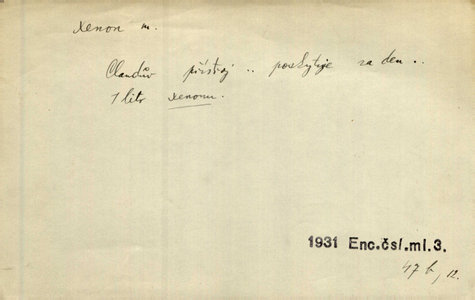 Xenon m.
Claudův přístroj .. poskytuje za den ..
1 litr xenonu.
1931 Enc.čsl.ml.3.
47 b, 12.